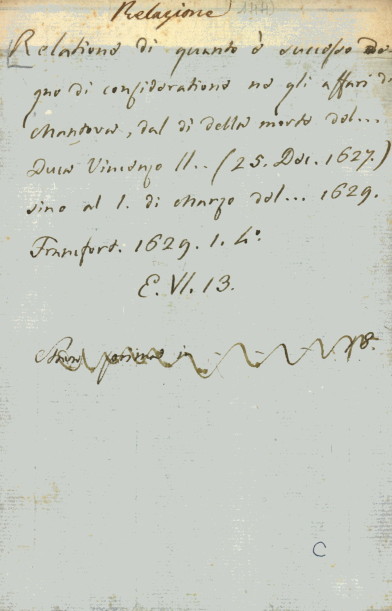 Relazione
Relatione di quanto è successo De
gno di consideratione ne gli affari di
Mantova, dal di della morte del...
Duca Vincenzo II.. (25. Dec. 1627.)
sino al 1. di Marzo del... 1629.
Francfort. 1629. 1. 4°.
E. VI. 13.
C